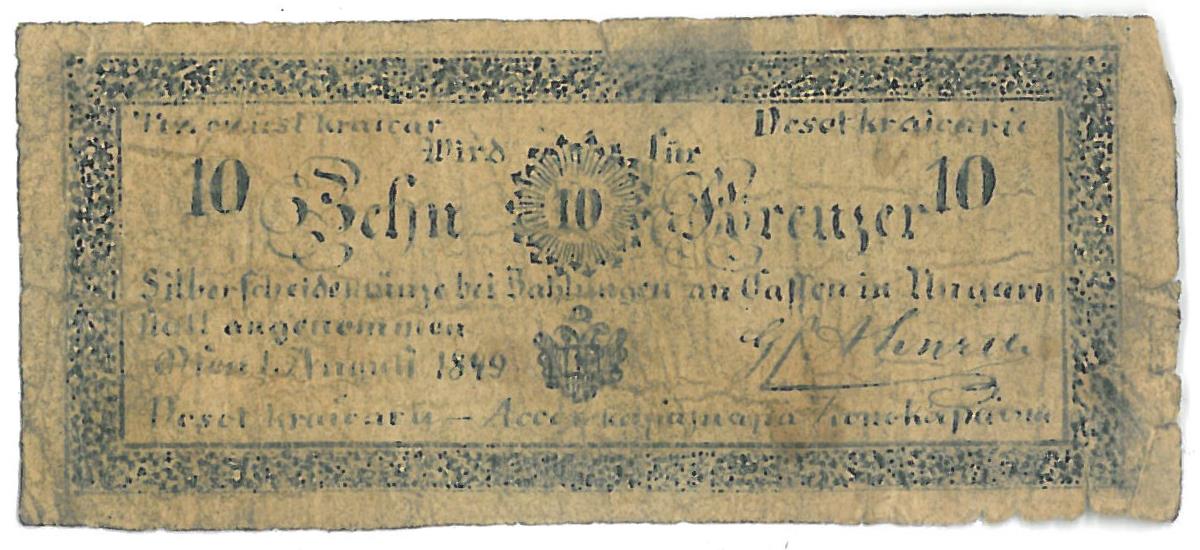 Tiz ezüst kraicar
Deset kraicarů
Wird für
10 Zehn 10 Kreuzer 10
Silberscheidemünze bei Zahlungen an Cassen in Ungarn
statt angenommen
1. August 1849
Deset kraicarů —